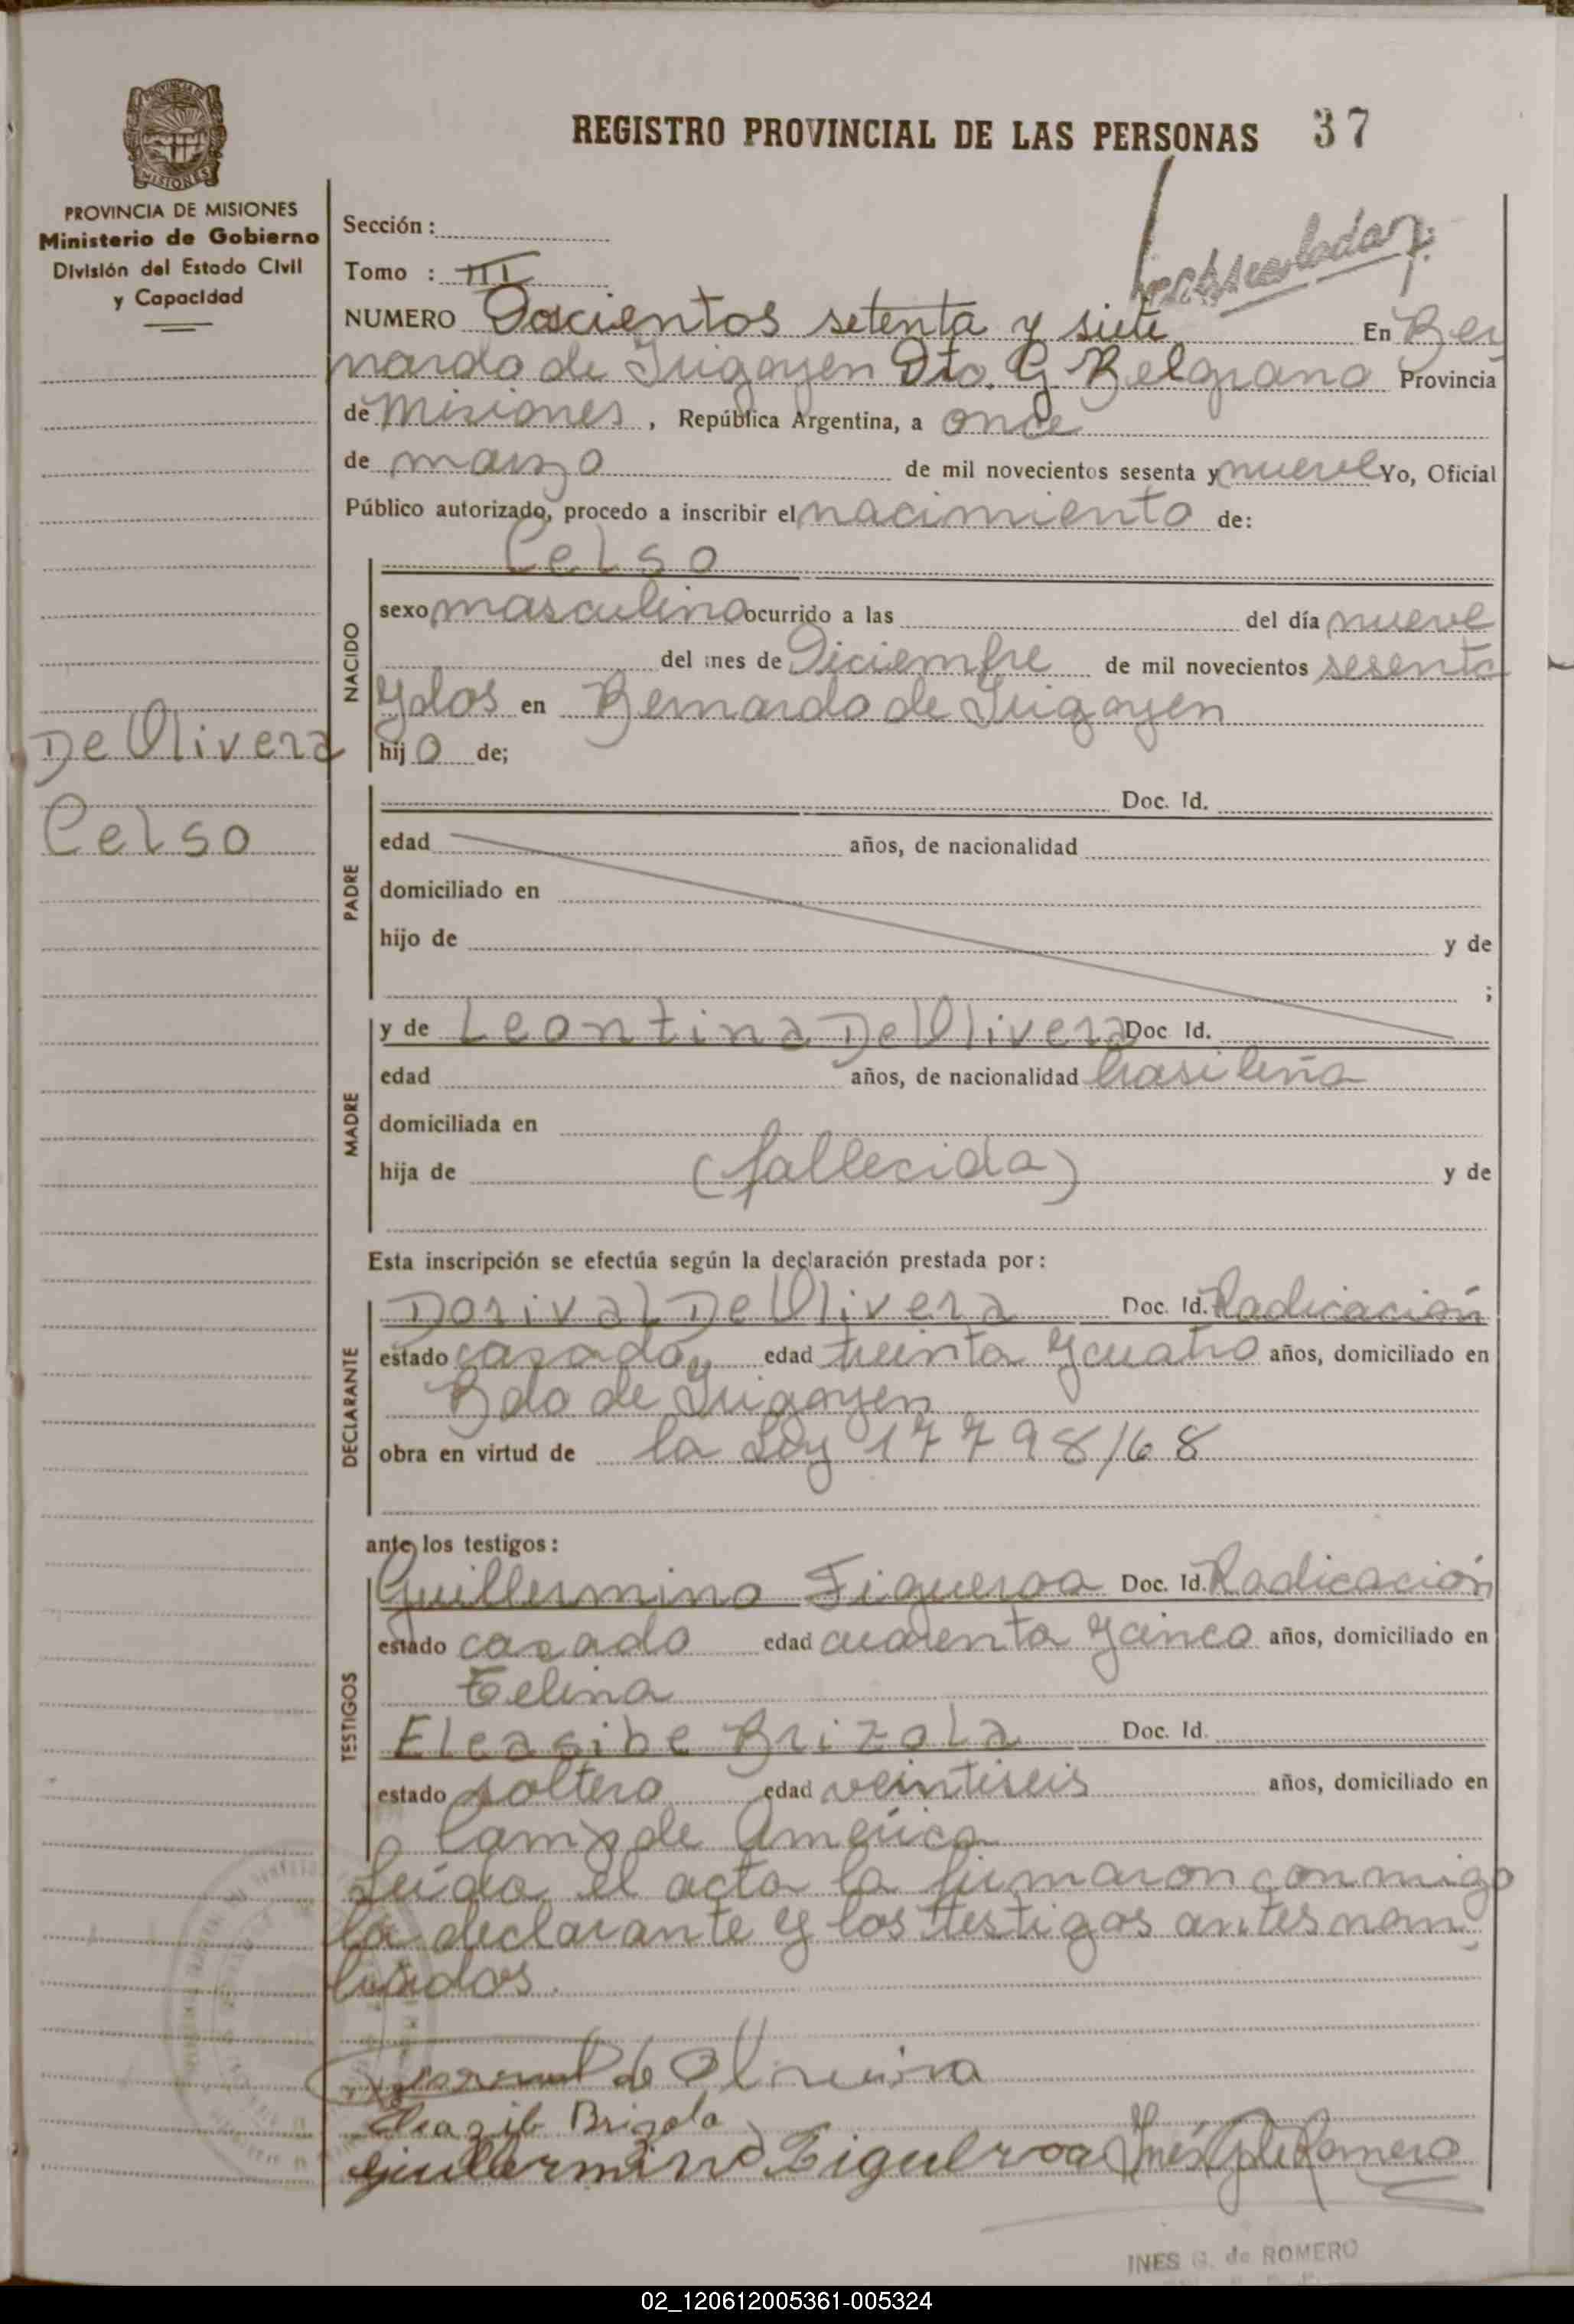 REGISTRO PROVINCIAL DE LAS PERSONAS 37
PROVINCIA DE MISIONES
Ministerio de Gobierno
División del Estado Civil
y Capacidad
De Olivera
Celso
Sección :
Tomo : III
NUMERO Doscientos setenta y siete En Ber
nardo de Irigoyen Dto. G. Belgrano Provincia
de Misiones , República Argentina, a once
de marzo de mil novecientos sesenta y nueve Yo, Oficial
Público autorizado, procedo a inscribir el nacimiento de:
Celso
NACIDO
sexo masculino ocurrido a las del día nueve
del mes de Diciembre de mil novecientos sesenta
y dos en Bernardo de Irigoyen
hij o de;
PADRE
Doc. Id.
edad años, de nacionalidad
domiciliado en
hijo de y de
;
MADRE
y de Leontina De Olivera Doc Id.
edad años, de nacionalidad brasileña
domiciliada en
hija de (fallecida) y de
Esta inscripción se efectúa según la declaración prestada por :
DECLARANTE
Dorival De Olivera Doc. Id. Radicación
estado casado edad treinta y cuatro años, domiciliado en
Bdo de Irigoyen
obra en virtud de la Ley 17798/68
ante los testigos :
TESTIGOS
Guillermino Figueroa Doc. Id. Radicación
estado casado edad cuarenta y cinco años, domiciliado en
Eleasibe Brizola Doc. Id.
estado soltero edad veintiseis años, domiciliado en
de América
Leída el acta la firmaron conmigo
la declarante y los testigos antes nom
brados.
de Oliveira
Eleazib Brizola
Guilermino Figueroa Inés G de Romero
INES G. de ROMERO
02_120612005361-005324